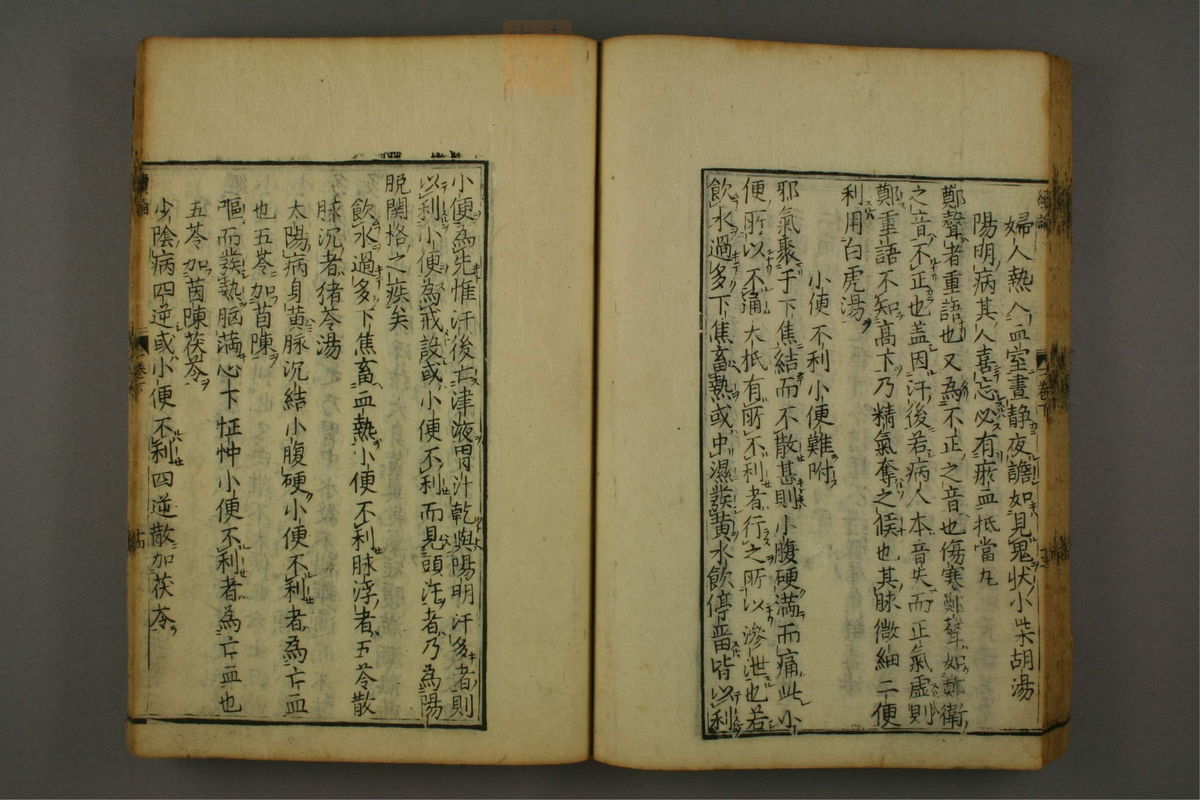 婦人熱入血室晝静夜譫如見鬼状小柴胡湯
陽明病其人喜忘必有瘀血抵當丸
鄭聲者重語也又為不正之音也傷寒鄭聲如鄭衛
之音不正也盖因汗後若病人本音失而正氣虚則
鄭重語不知髙下乃精氣奪之候也其脉微細二便
利用白虎湯
小便不利小便難附
邪氣聚于下焦結而不散甚則小腹硬満而痛此小
便所以不通大抵有所不利者行之所以滲泄也若
飲水過多下焦畜熱或中濕發黄水飲停畜皆以利
小便為先惟汗後亡津液胃汁乾與陽明汗多者則
以利小便為戒設或小便不利而見頭汗者乃為陽
脱関格之疾矣
飲水過多下焦畜血熱小便不利脉浮者五苓散
脉沉者猪苓湯
太陽病身黄脉沉結小腹硬小便不利者為亡血
也五苓加茵陳
嘔而發熱胸満心下怔忡小便不利者為亡血也
五苓加茵陳茯苓
少陰病四逆或小便不利四逆散加茯苓
卷下